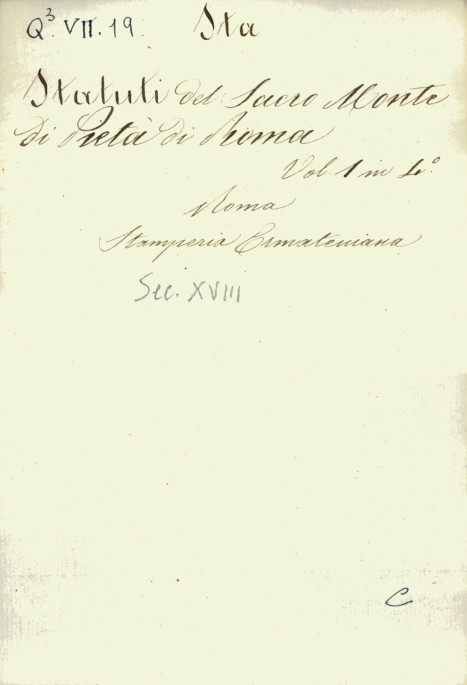 Q³. VII. 19. Sta
Statuti del Sacro Monte
di Pietà di Roma
Vol. 1 in 4.º
Roma
Stamperia Ermateniana
Sec. XVIII
C